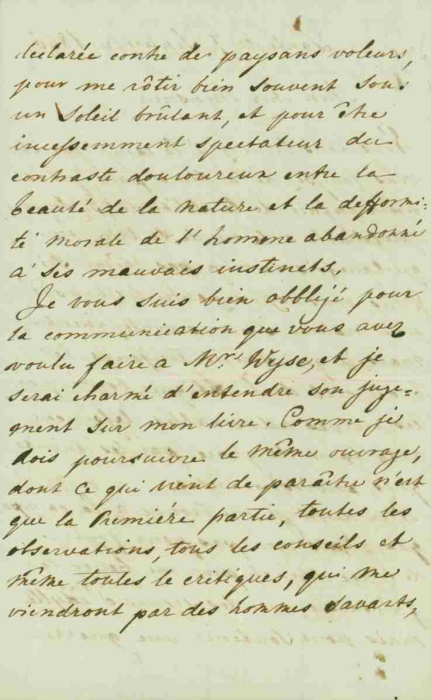 declarée contre de paysans voleurs,
pour me rôtir bien souvent sous
un Soleil brûlant, et pour être
incessemment spectateur du
contraste douloureux entre la
beauté de la nature et la defformi-
té morale de l'homme abandonné
à ses mauvais instincts.
Je vous suis bien obbligé pour
la communication que vous avez
voulu faire a Mr. Wyse, et je
serai charmé d'entendre son juge-
ment sur mon livre. Comme je
dois poursuivre le même ouvrage,
dont ce qui vient de paraître n'est
que la Première partie, toutes les
observations, tous les conseils et
même toutes le critiques, qui me
viendront par des hommes savants,